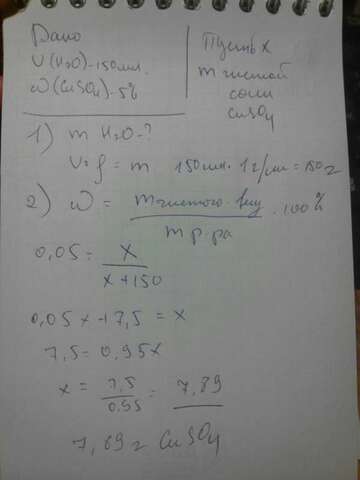 Дано
V(H2O)-150мл.
ω(CuSO4)-5%
Пусть x
m чистой
соли
CuSO4
1) m H2O-?
V·ρ = m 150мл·1г/см=150г
2) ω = m чистого вещ / m р-ра · 100%
0,05 = x / x+150
0,05x+7,5 = x
7,5 = 0,95x
x = 7,5 / 0.95 = 7,89
7,89г CuSO4